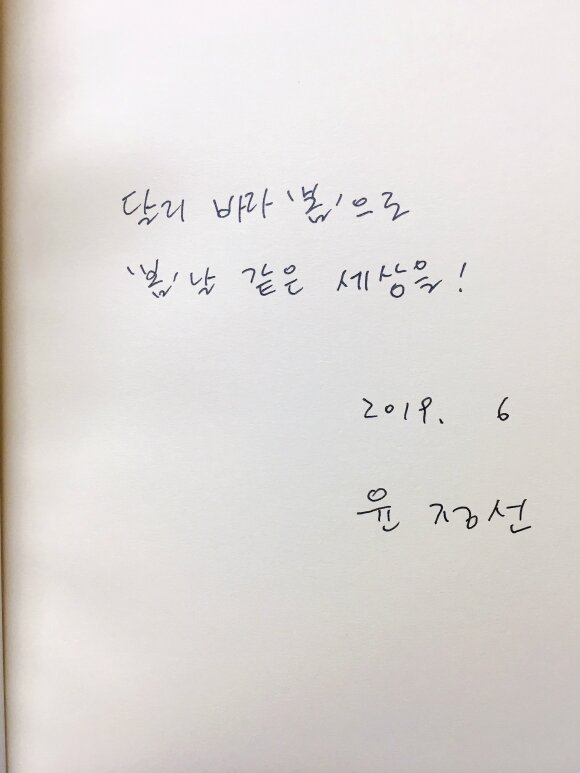 달리 바라'봄'으로
'봄'날 같은 세상을!
2019. 6
윤정선